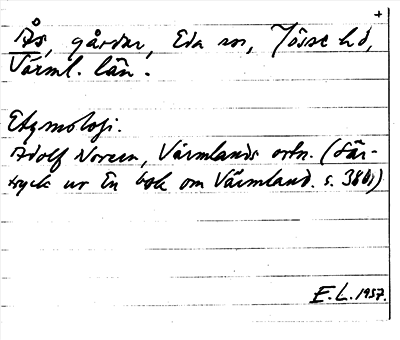 +
Ås, gårdar, Eda sn, Jösse hd,
Värml. län.
Etymologi.
Adolf Noreen, Värmlands ortn. (Sär-
tryck ur En bok om Värmland. s.
E. L. 1937.